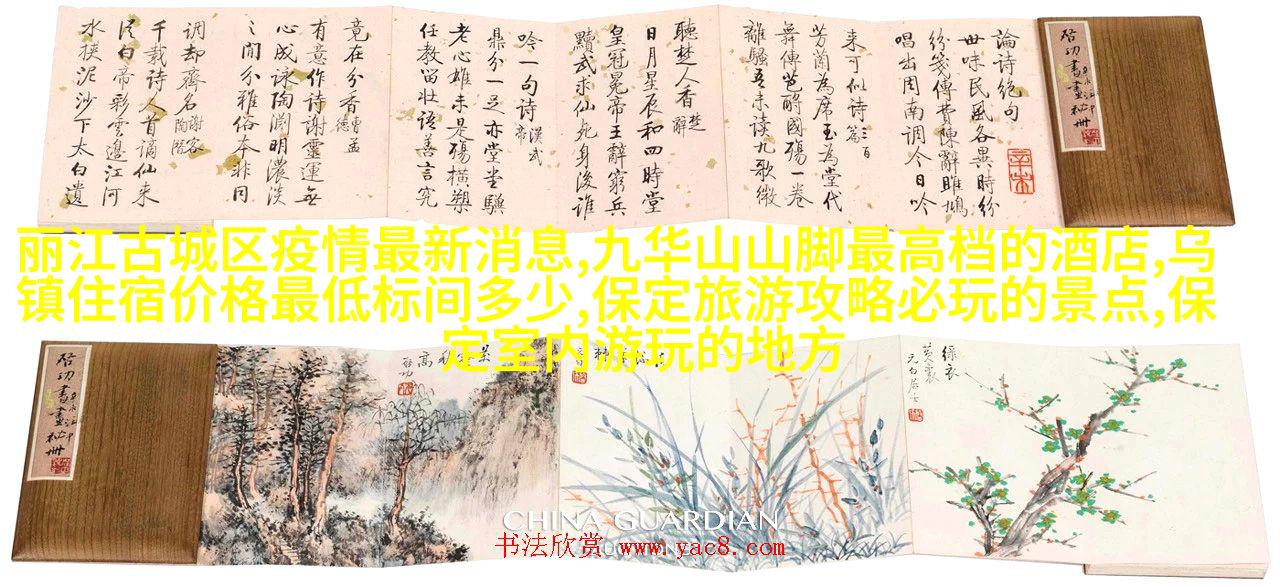 啓功書畫袖珍册
論詩絕句
世味民風各異時紛
紛箋傳費陳辭雎鳩
唱出周南調今日吟
來可似詩三百篇
芳蘭為席玉為堂代
舞傳芭酹國殤一卷
離騷吾未讀九歌微
聽楚人香楚辭
日月星辰和四時堂
皇冠冕帝王辭窮兵
黷武求仙死身後誰
吟一句詩漢武帝
鼎分一足亦堂堂驥
老心雄未是殤橫槊
任教留壯語善言究
竟在分香曹孟德
有意作詩謝靈運無
心成詠陶淵明濃淡
之間分雅俗本非同
調却齊名謝客陶潛
千載詩人首謫仙來
從白帝彩雲邊江河
水挾泥沙下太白遺
丽江古城区疫情最新消息,九华山山脚最高档的酒店,乌
镇住宿价格最低标间多少,保定旅游攻略必玩的景点,保
定室内游玩的地方
綠衣
黃裏
元白居士
高
啓功
啓功書畫袖珍册
CHINA GUARDIAN
书法欣赏 www.yac8.com